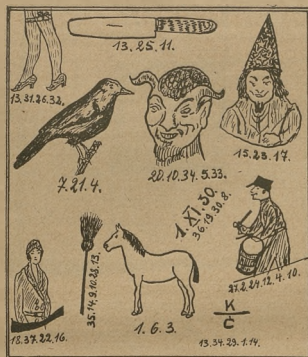 13.25.11.
13.31.26.32.
7.21.4.
20.10.34.5.33.
15.23.17.
1.XI.30.
36.19.30.8.
27.2.24.12.4.10.
35.14.9.10.28.13.
18.37.22.16.
1.6.3.
K
Č
13.34.29.1.14.